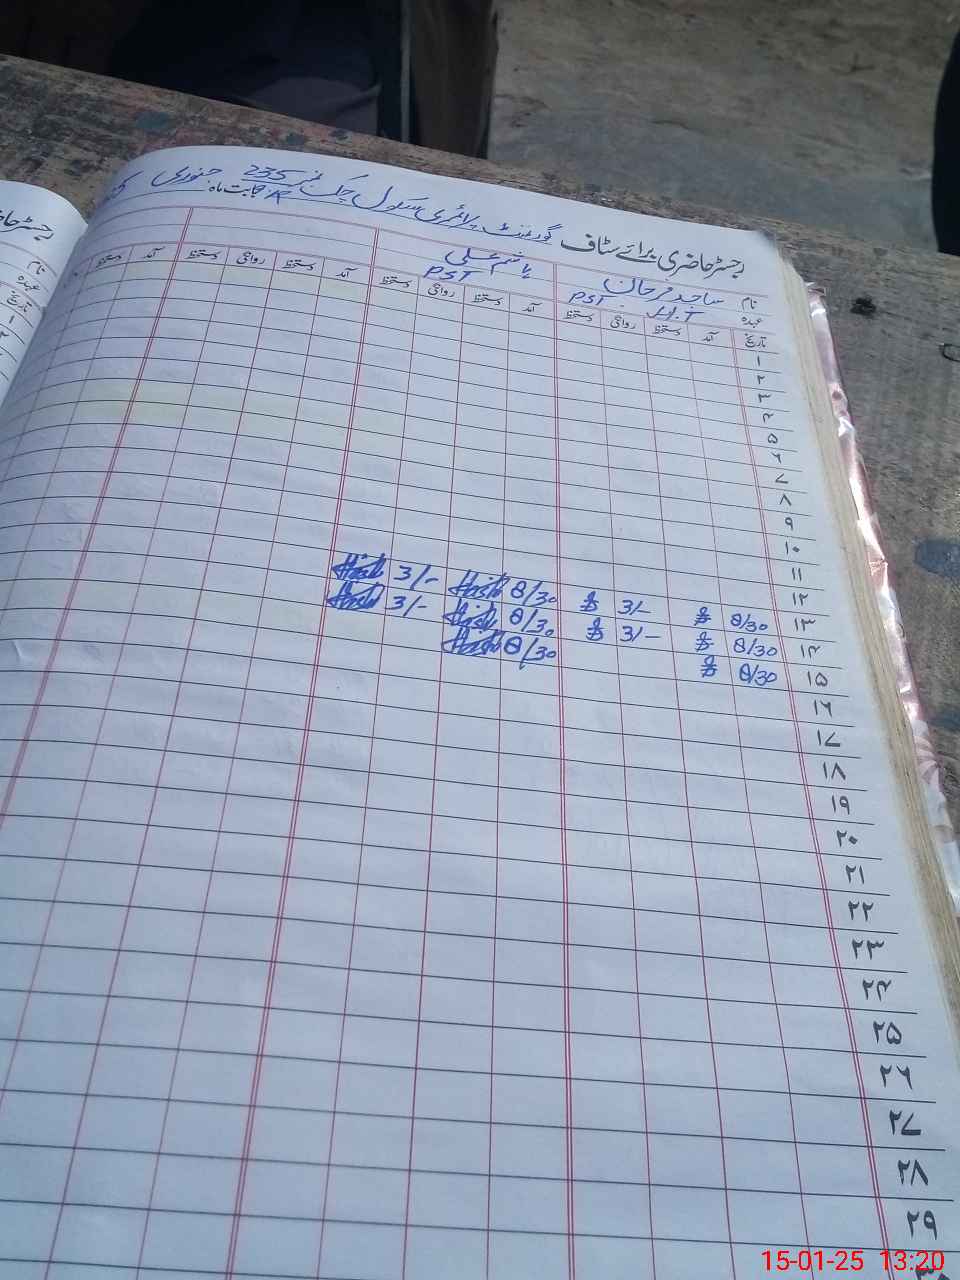 رجسٹر حاضری برائے سٹاف گورنمنٹ پرائمری سکول چک نمبر 235 بابت ماہ: جنوری
نام ساجد مرجان ہاشم علی
عہدہ PST H.T PST
تاریخ آمد دستخط روانگی دستخط آمد دستخط روانگی دستخط آمد دستخط روانگی دستخط آمد دستخط
۱
۲
۳
۴
۵
۶
۷
۸
۹
۱۰
۱۱
۱۲
۱۳ 8/30 3/- 8/30 3/-
۱۴ 8/30 3/- 8/30 3/-
۱۵ 8/30 8/30
۱۶
۱۷
۱۸
۱۹
۲۰
۲۱
۲۲
۲۳
۲۴
۲۵
۲۶
۲۷
۲۸
۲۹
۳۰
رجسٹر حا
نام
عہدہ
تاریخ
۱
۲
15-01-25 13:20